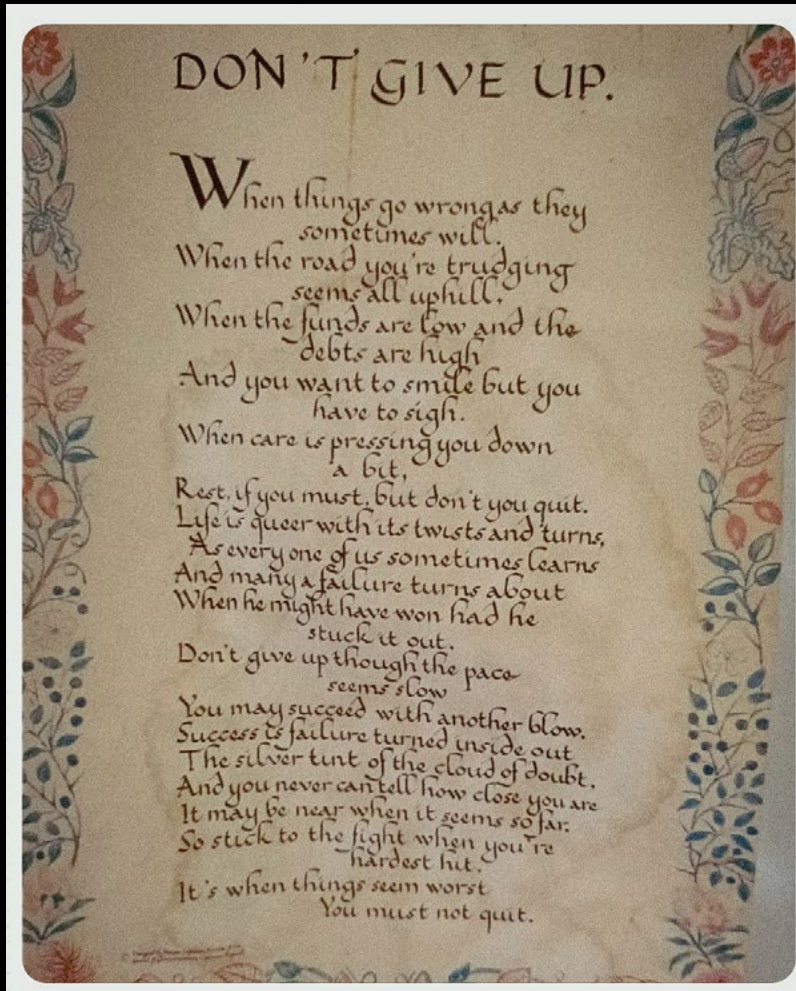 DON'T GIVE UP.
When things go wrong as they
sometimes will.
When the road you're trudging
seems all uphill,
When the funds are low and the
debts are high
And you want to smile but you
have to sigh.
When care is pressing you down
a bit,
Rest, if you must, but don't you quit.
Life is queer with its twists and turns,
As every one of us sometimes learns
And many a failure turns about
When he might have won had he
stuck it out.
Don't give up though the pace
seems slow
You may succeed with another blow.
Success is failure turned inside out
The silver tint of the cloud of doubt,
And you never can tell how close you are
It may be near when it seems so far.
So stick to the fight when you're
hardest hit.
It's when things seem worst
You must not quit.